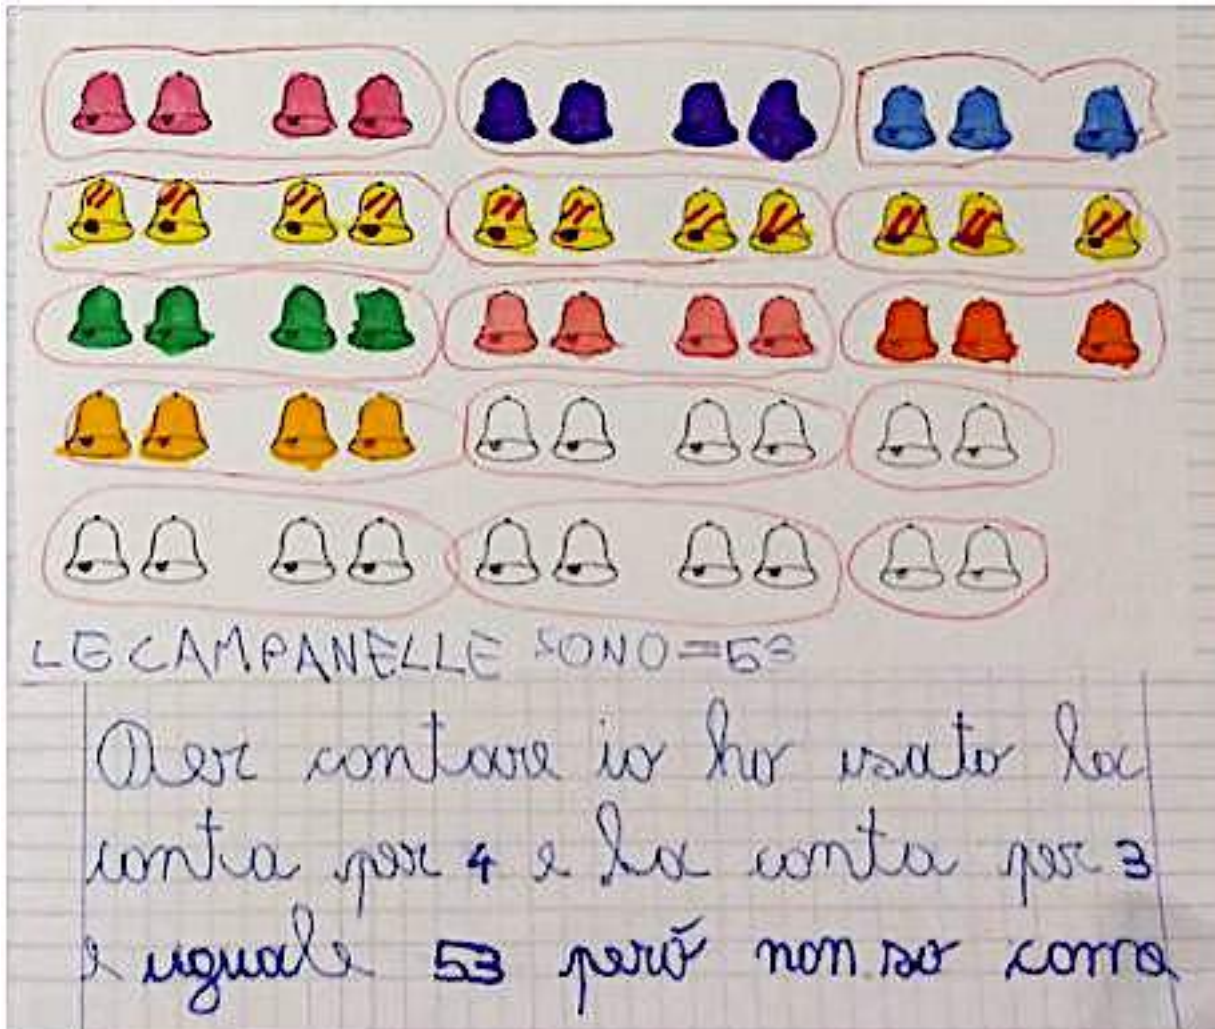 LE CAMPANELLE SONO=53
Per contare io ho usato la
conta per 4 e la conta per 3
e uguale 53 però non so come